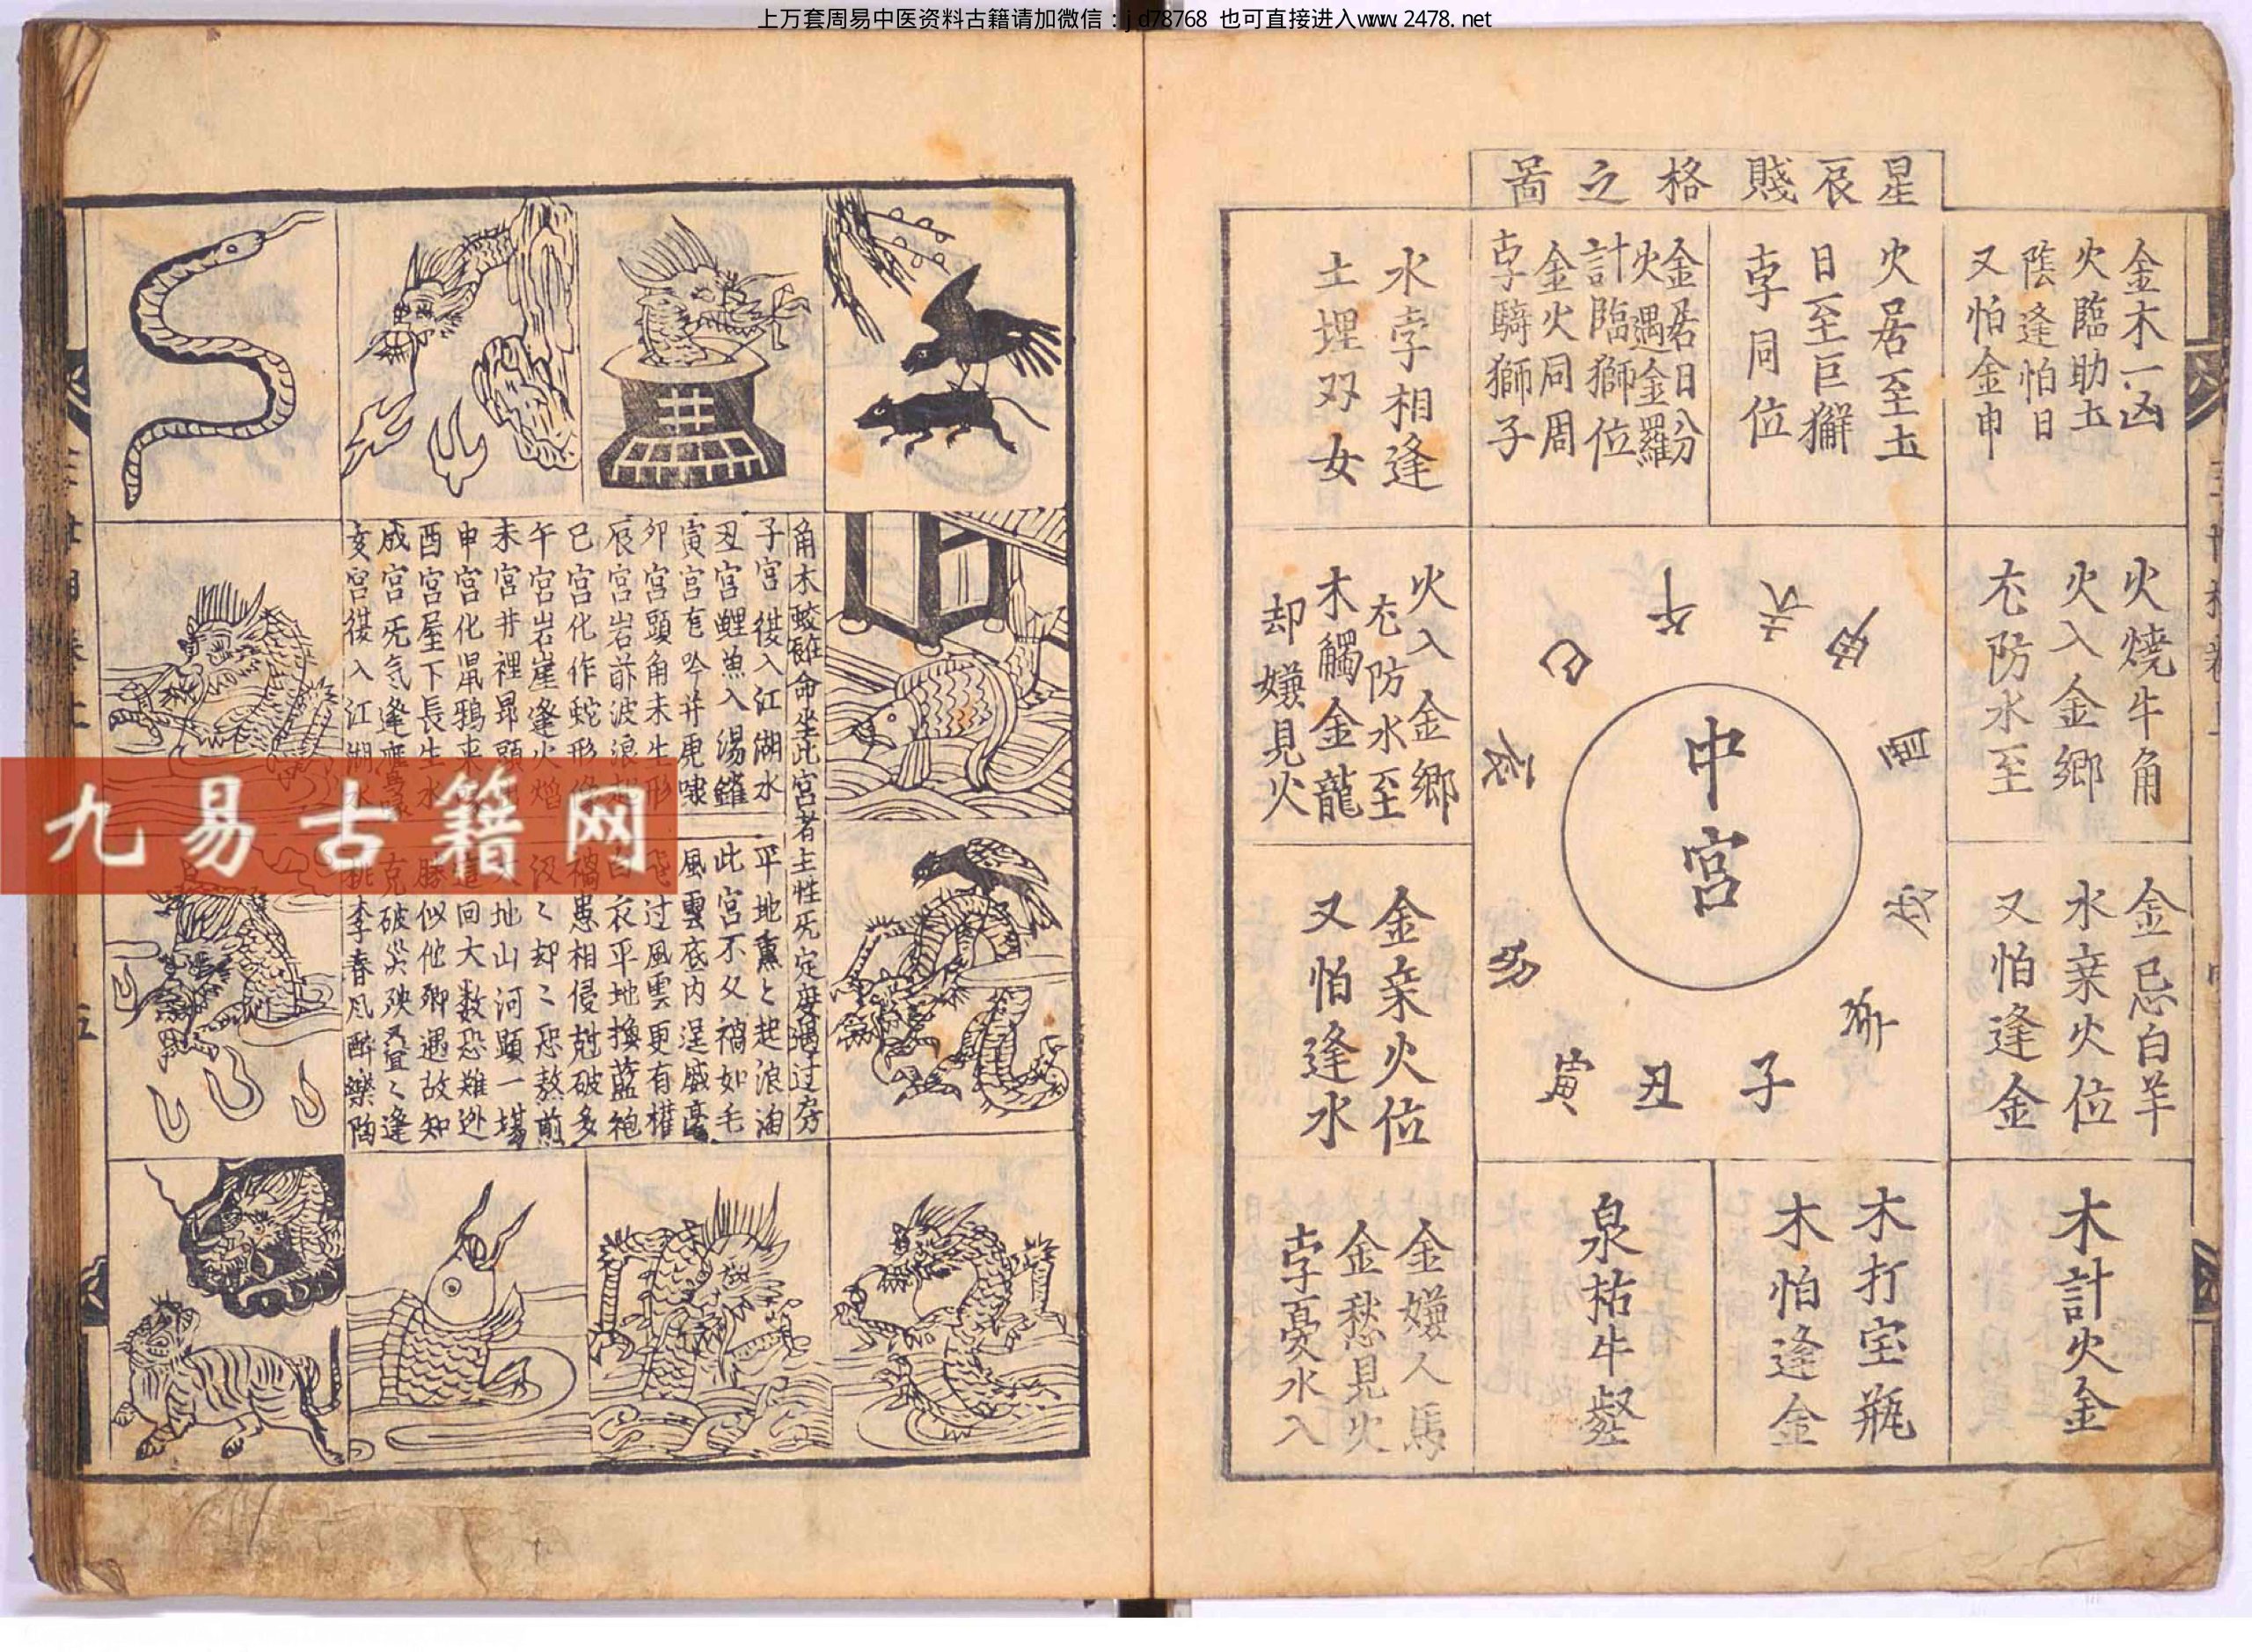 上万套周易中医资料古籍请加微信：jd78768 也可直接进入www.2478.net
星辰賤格之啚
金木一凶
火臨助土
陰逢怕日
又怕金申
火居至土
日至巨獬
孛同位
金居日分
火遇金羅
計臨獅位
金火同周
孛騎獅子
水孛相逢
土埋双女
火燒牛角
火入金鄉
冘防水至
火入金鄉
冘防水至
木觸金龍
却嫌見火
金忌白羊
水亲火位
又怕逢金
金亲火位
又怕逢水
木計火金
木打宝瓶
木怕逢金
泉祐牛
金嫌人馬
金愁見火
孛憂水入
中宮
巳
午
未
申
酉
戌
亥
子
丑
寅
卯
辰
角木蛟 命坐此宮者主性
子宮 入江湖水 平地 起浪淘
丑宮鯉魚入湯鑵 此宮不久禍如毛
寅宮 吟并虎嘯 風雲底内逞威
卯宮頭角未生形 飛过風雲更有權
辰宮岩前波浪起 白衣平地換藍袍
巳宮化作蛇形 禍患相侵尅破多
午宮岩崖逢火焰 汲〻却〻恐熬煎
未宮井裡昻頭 大地山河顕一
申宮化 鴉来 這回大数恐難迯
酉宮屋下長生水 勝似他 遇故知
戌宮死气逢 克破災殃 〻逢
亥宮 入江湖 桃李春风醉樂陶
九易古籍网